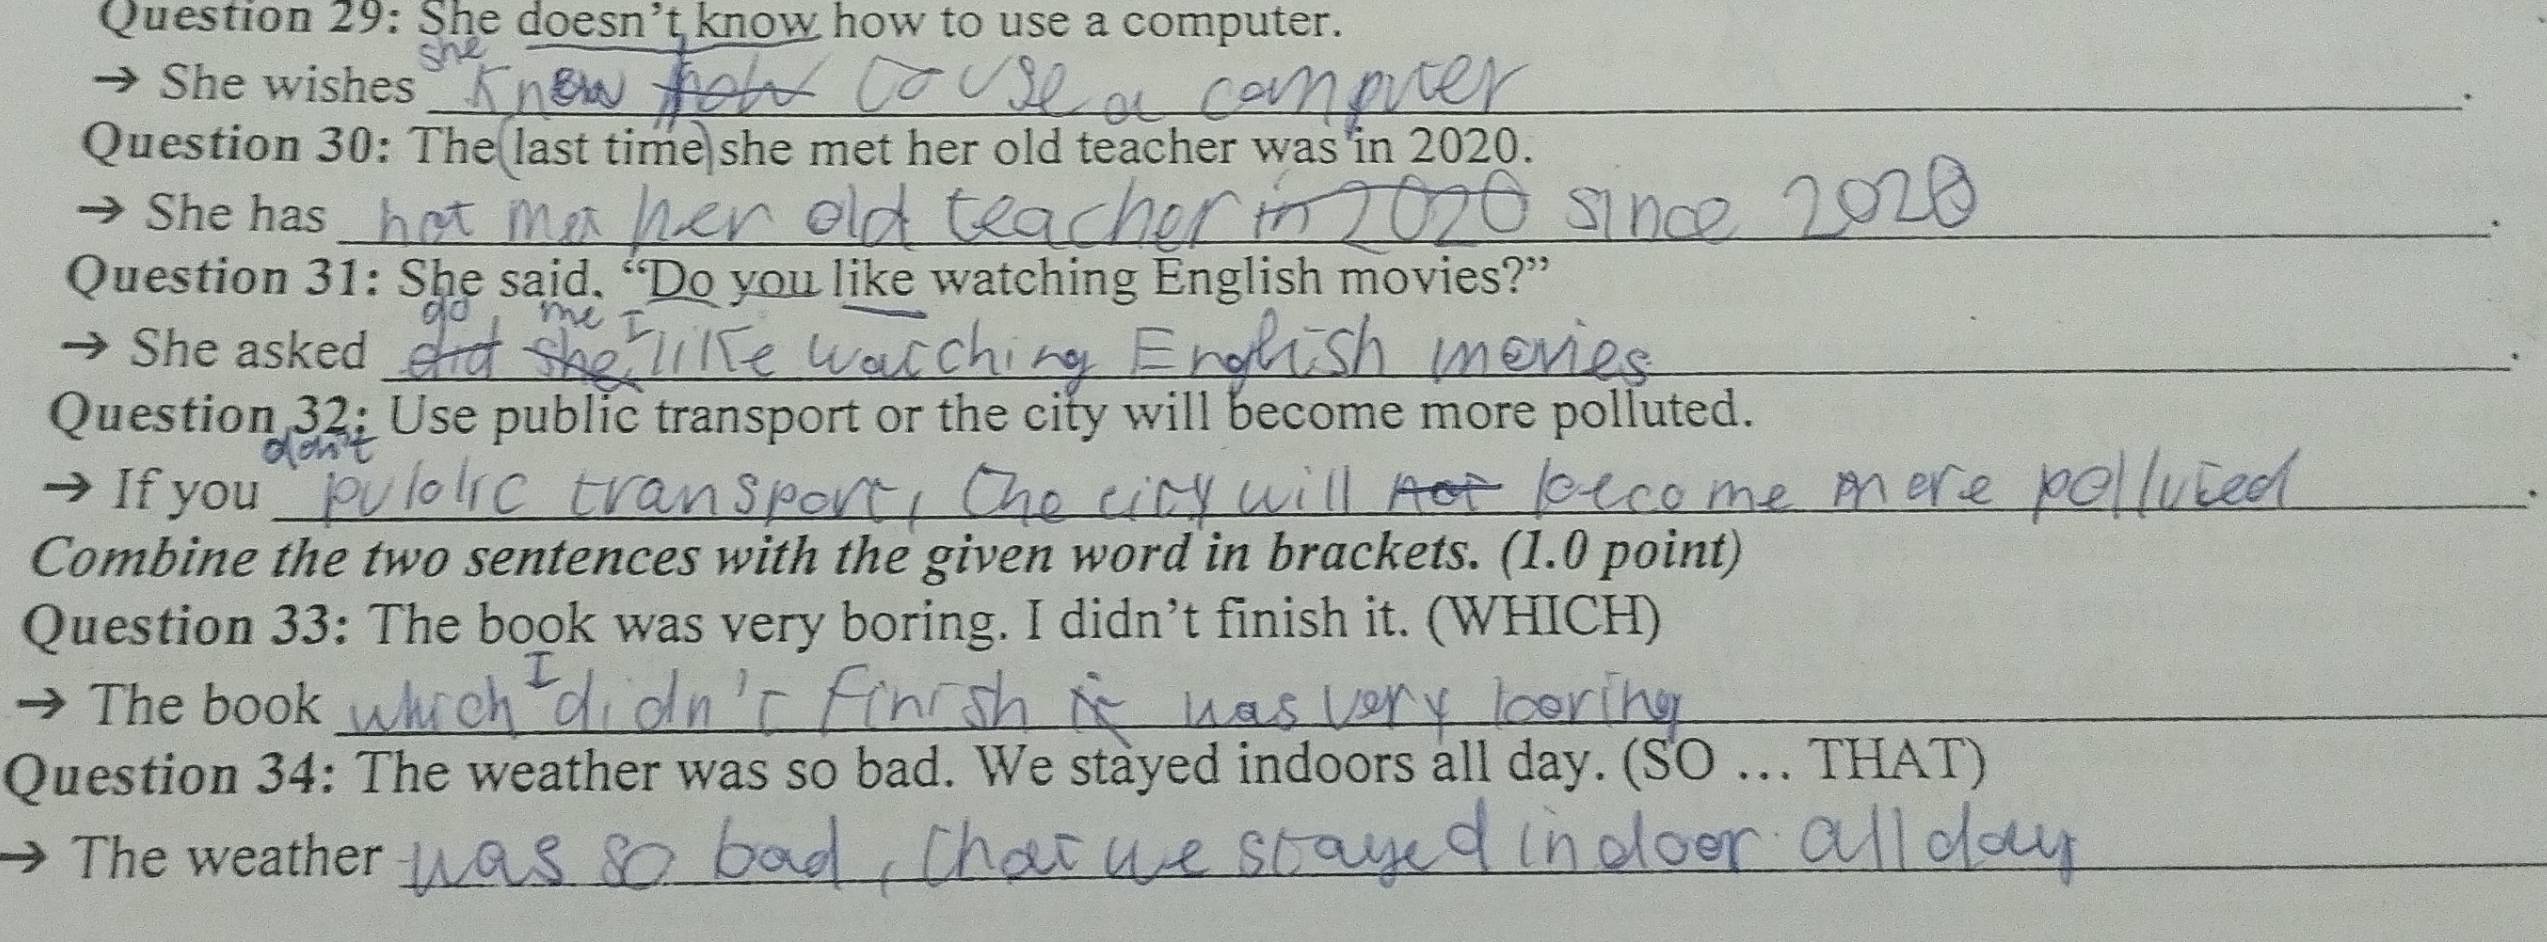 Question 29: She doesn't know how to use a computer.
she
→ She wishes know how to use a computer.
Question 30: The (last time) she met her old teacher was in 2020.
→ She has not met her old teacher in 2020 since 2020.
Question 31: She said. “Do you like watching English movies?”
do me I
→ She asked did she like watching English movies.
Question 32: Use public transport or the city will become more polluted.
don't
→ If you public transport, the city will not become more polluted.
Combine the two sentences with the given word in brackets. (1.0 point)
Question 33: The book was very boring. I didn't finish it. (WHICH)
I
→ The book which didn't finish it was very boring
Question 34: The weather was so bad. We stayed indoors all day. (SO … THAT)
→ The weather was so bad, that we stayed indoor all day